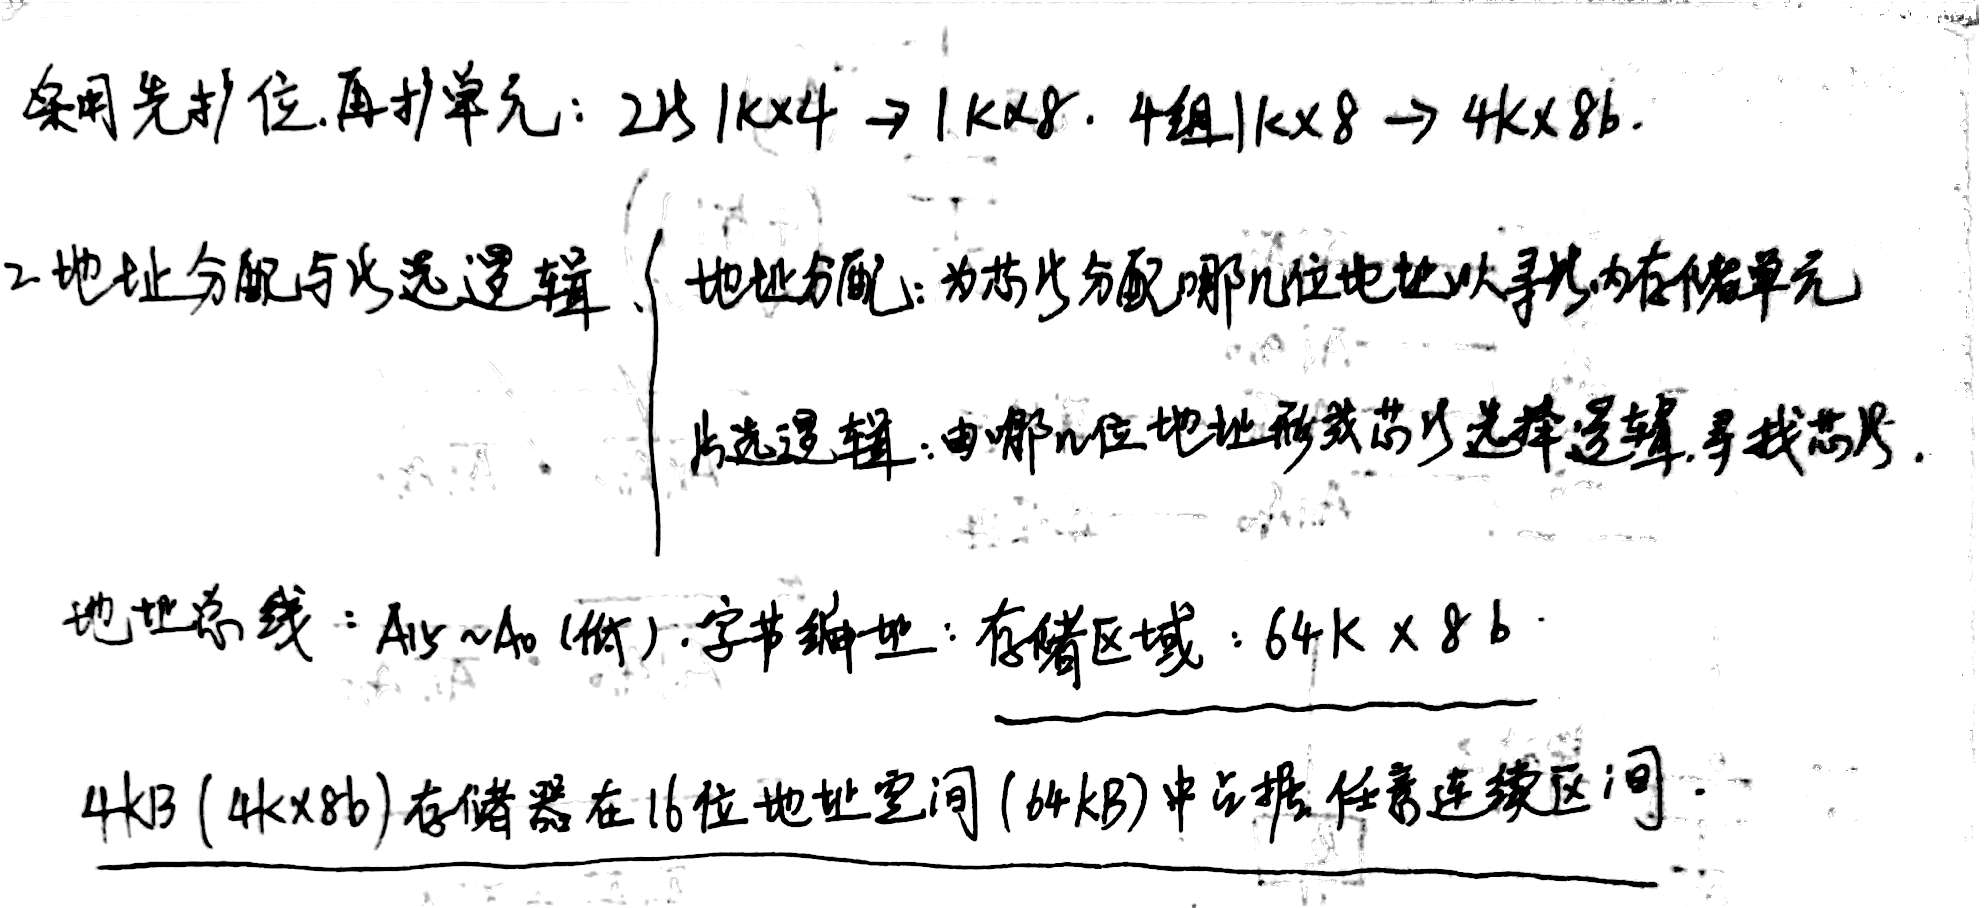 采用先扩位.再扩单元：2片1K×4 → 1K×8. 4组1K×8 → 4K×8b.
2 地址分配与片选逻辑. { 地址分配：为芯片分配哪几位地址以寻找片内存储单元
片选逻辑：由哪几位地址形成芯片选择逻辑.寻找芯片.
地址总线：A15~A0 (低).字节编址：存储区域：64K × 8b.
4KB (4K×8b) 存储器在16位地址空间 (64KB) 中占据任意连续区间.